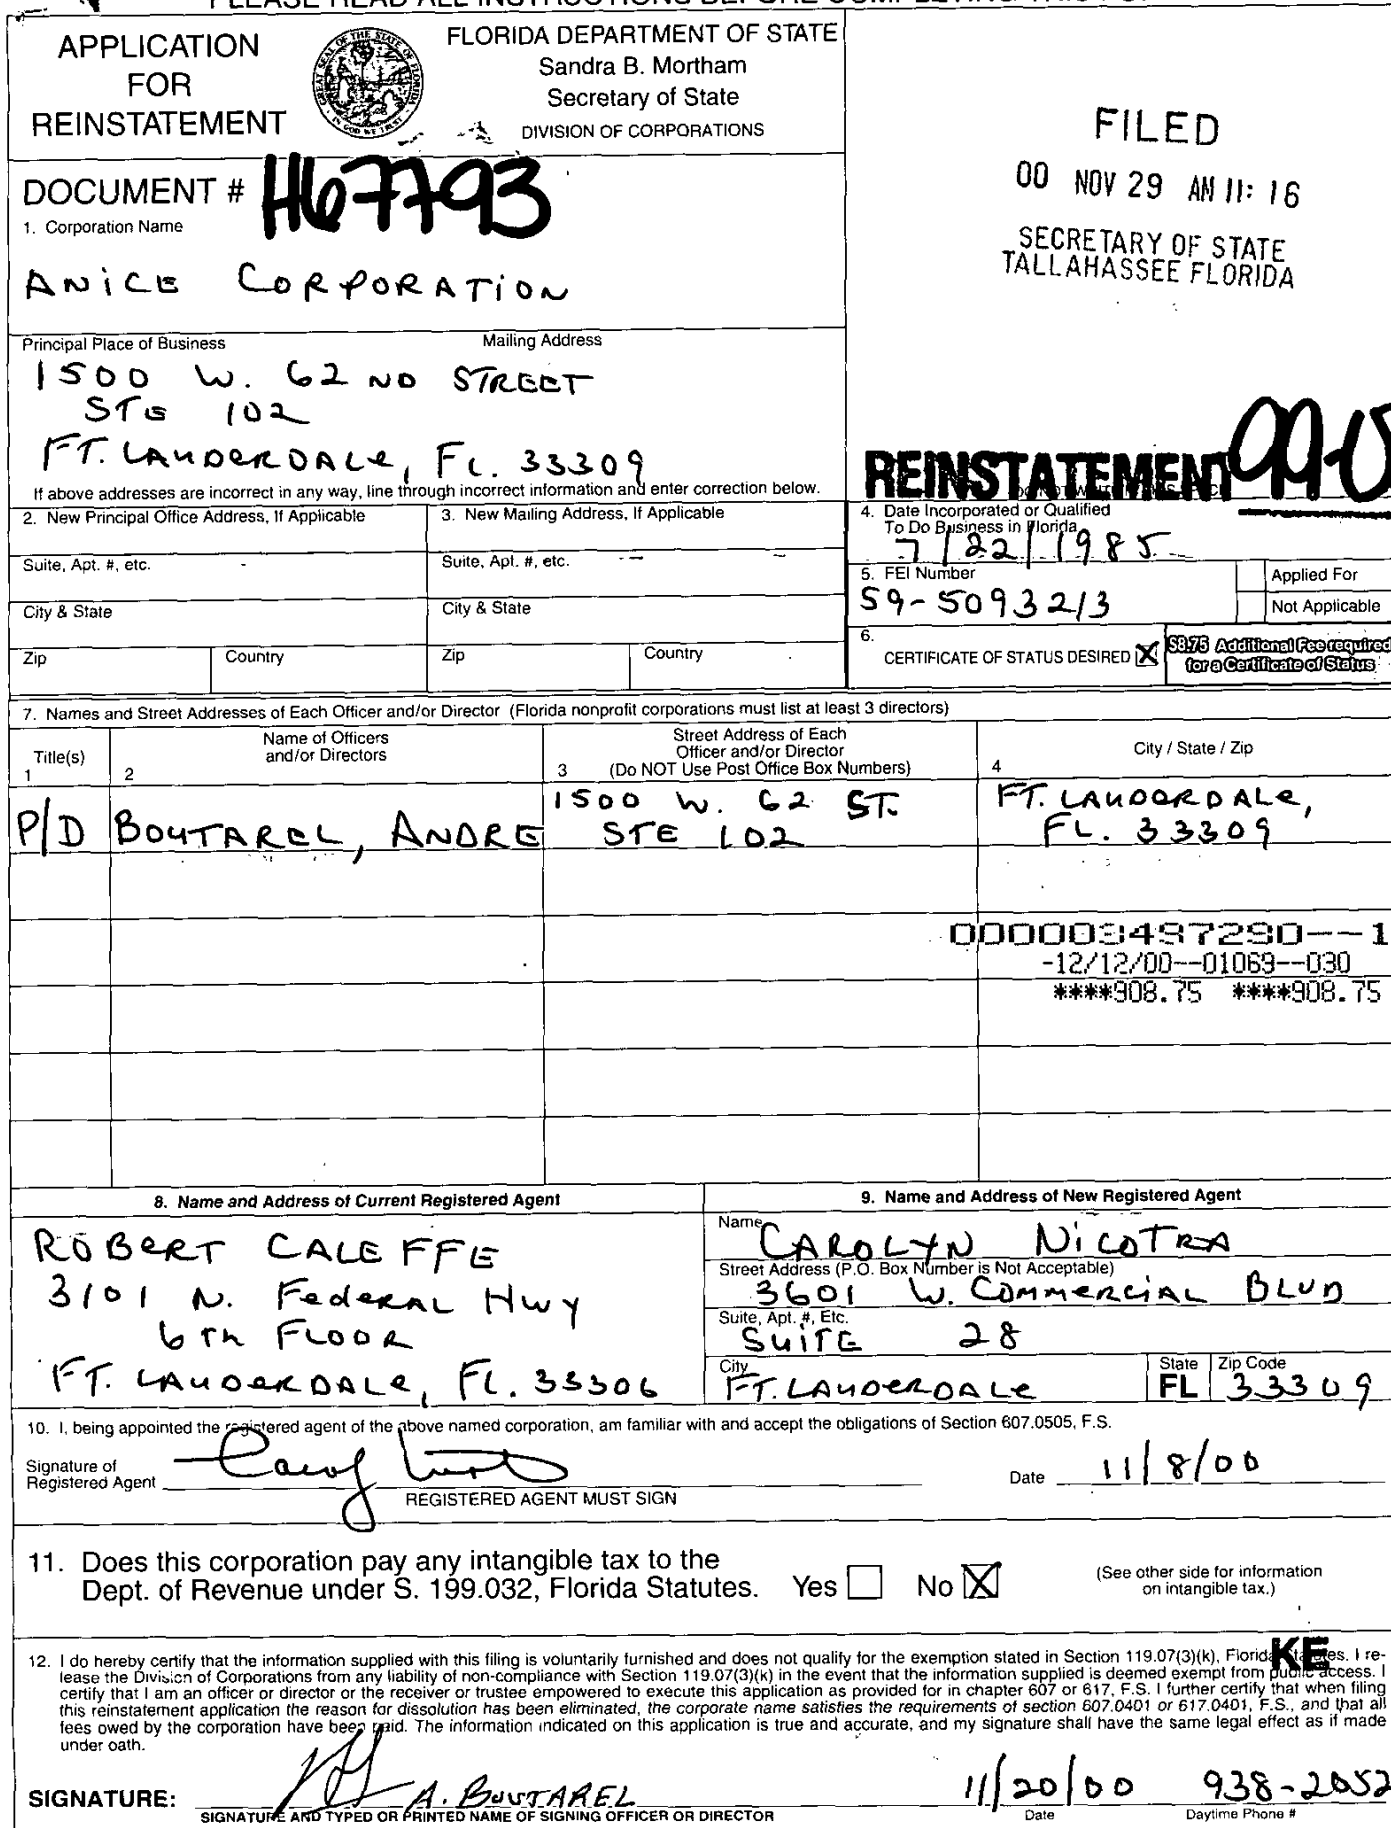 PLEASE READ ALL INSTRUCTIONS BEFORE COMPLETING THIS
APPLICATION
FOR
REINSTATEMENT
FLORIDA DEPARTMENT OF STATE
Sandra B. Mortham
Secretary of State
DIVISION OF CORPORATIONS
GREAT SEAL OF THE STATE OF FLORIDA
IN GOD WE TRUST
FILED
00 NOV 29 AM 11: 16
SECRETARY OF STATE
TALLAHASSEE FLORIDA
DOCUMENT # H67793
1. Corporation Name
ANICE CORPORATION
Principal Place of Business
Mailing Address
1500 W. 62ND STREET
STE 102
FT. LAUDERDALE, FL. 33309
If above addresses are incorrect in any way, line through incorrect information and enter correction below.
REINSTATEMENT 99-0
2. New Principal Office Address, If Applicable
3. New Mailing Address, If Applicable
4. Date Incorporated or Qualified
To Do Business in Florida
7/22/1985
Suite, Apt. #, etc.
Suite, Apt. #, etc.
5. FEI Number
59-5093213
Applied For
Not Applicable
City & State
City & State
6.
CERTIFICATE OF STATUS DESIRED X
$8.75 Additional Fee required
for a Certificate of Status
Zip
Country
Zip
Country
7. Names and Street Addresses of Each Officer and/or Director (Florida nonprofit corporations must list at least 3 directors)
Title(s)
1
Name of Officers
and/or Directors
2
Street Address of Each
Officer and/or Director
3 (Do NOT Use Post Office Box Numbers)
City / State / Zip
4
P/D BOUTAREL, ANDRE
1500 W. 62 ST.
STE 102
FT. LAUDERDALE,
FL. 33309
0000003497290--1
-12/12/00--01069--030
****908.75 ****908.75
8. Name and Address of Current Registered Agent
ROBERT CALEFFE
3101 N. Federal HWY
6th FLOOR
FT. LAUDERDALE, FL. 33306
9. Name and Address of New Registered Agent
Name
CAROLYN NICOTRA
Street Address (P.O. Box Number is Not Acceptable)
3601 W. COMMERCIAL BLVD
Suite, Apt. #, Etc.
SUITE 28
City
FT. LAUDERDALE
State
FL
Zip Code
33309
10. I, being appointed the registered agent of the above named corporation, am familiar with and accept the obligations of Section 607.0505, F.S.
Signature of
Registered Agent
REGISTERED AGENT MUST SIGN
Date 11/8/00
11. Does this corporation pay any intangible tax to the
Dept. of Revenue under S. 199.032, Florida Statutes. Yes No X
(See other side for information
on intangible tax.)
KE
12. I do hereby certify that the information supplied with this filing is voluntarily furnished and does not qualify for the exemption stated in Section 119.07(3)(k), Florida Statutes. I re-
lease the Division of Corporations from any liability of non-compliance with Section 119.07(3)(k) in the event that the information supplied is deemed exempt from public access. I
certify that I am an officer or director or the receiver or trustee empowered to execute this application as provided for in chapter 607 or 617, F.S. I further certify that when filing
this reinstatement application the reason for dissolution has been eliminated, the corporate name satisfies the requirements of section 607.0401 or 617.0401, F.S., and that all
fees owed by the corporation have been paid. The information indicated on this application is true and accurate, and my signature shall have the same legal effect as if made
under oath.
SIGNATURE: A. BOUTAREL
11/20/00 938-2052
SIGNATURE AND TYPED OR PRINTED NAME OF SIGNING OFFICER OR DIRECTOR
Date
Daytime Phone #